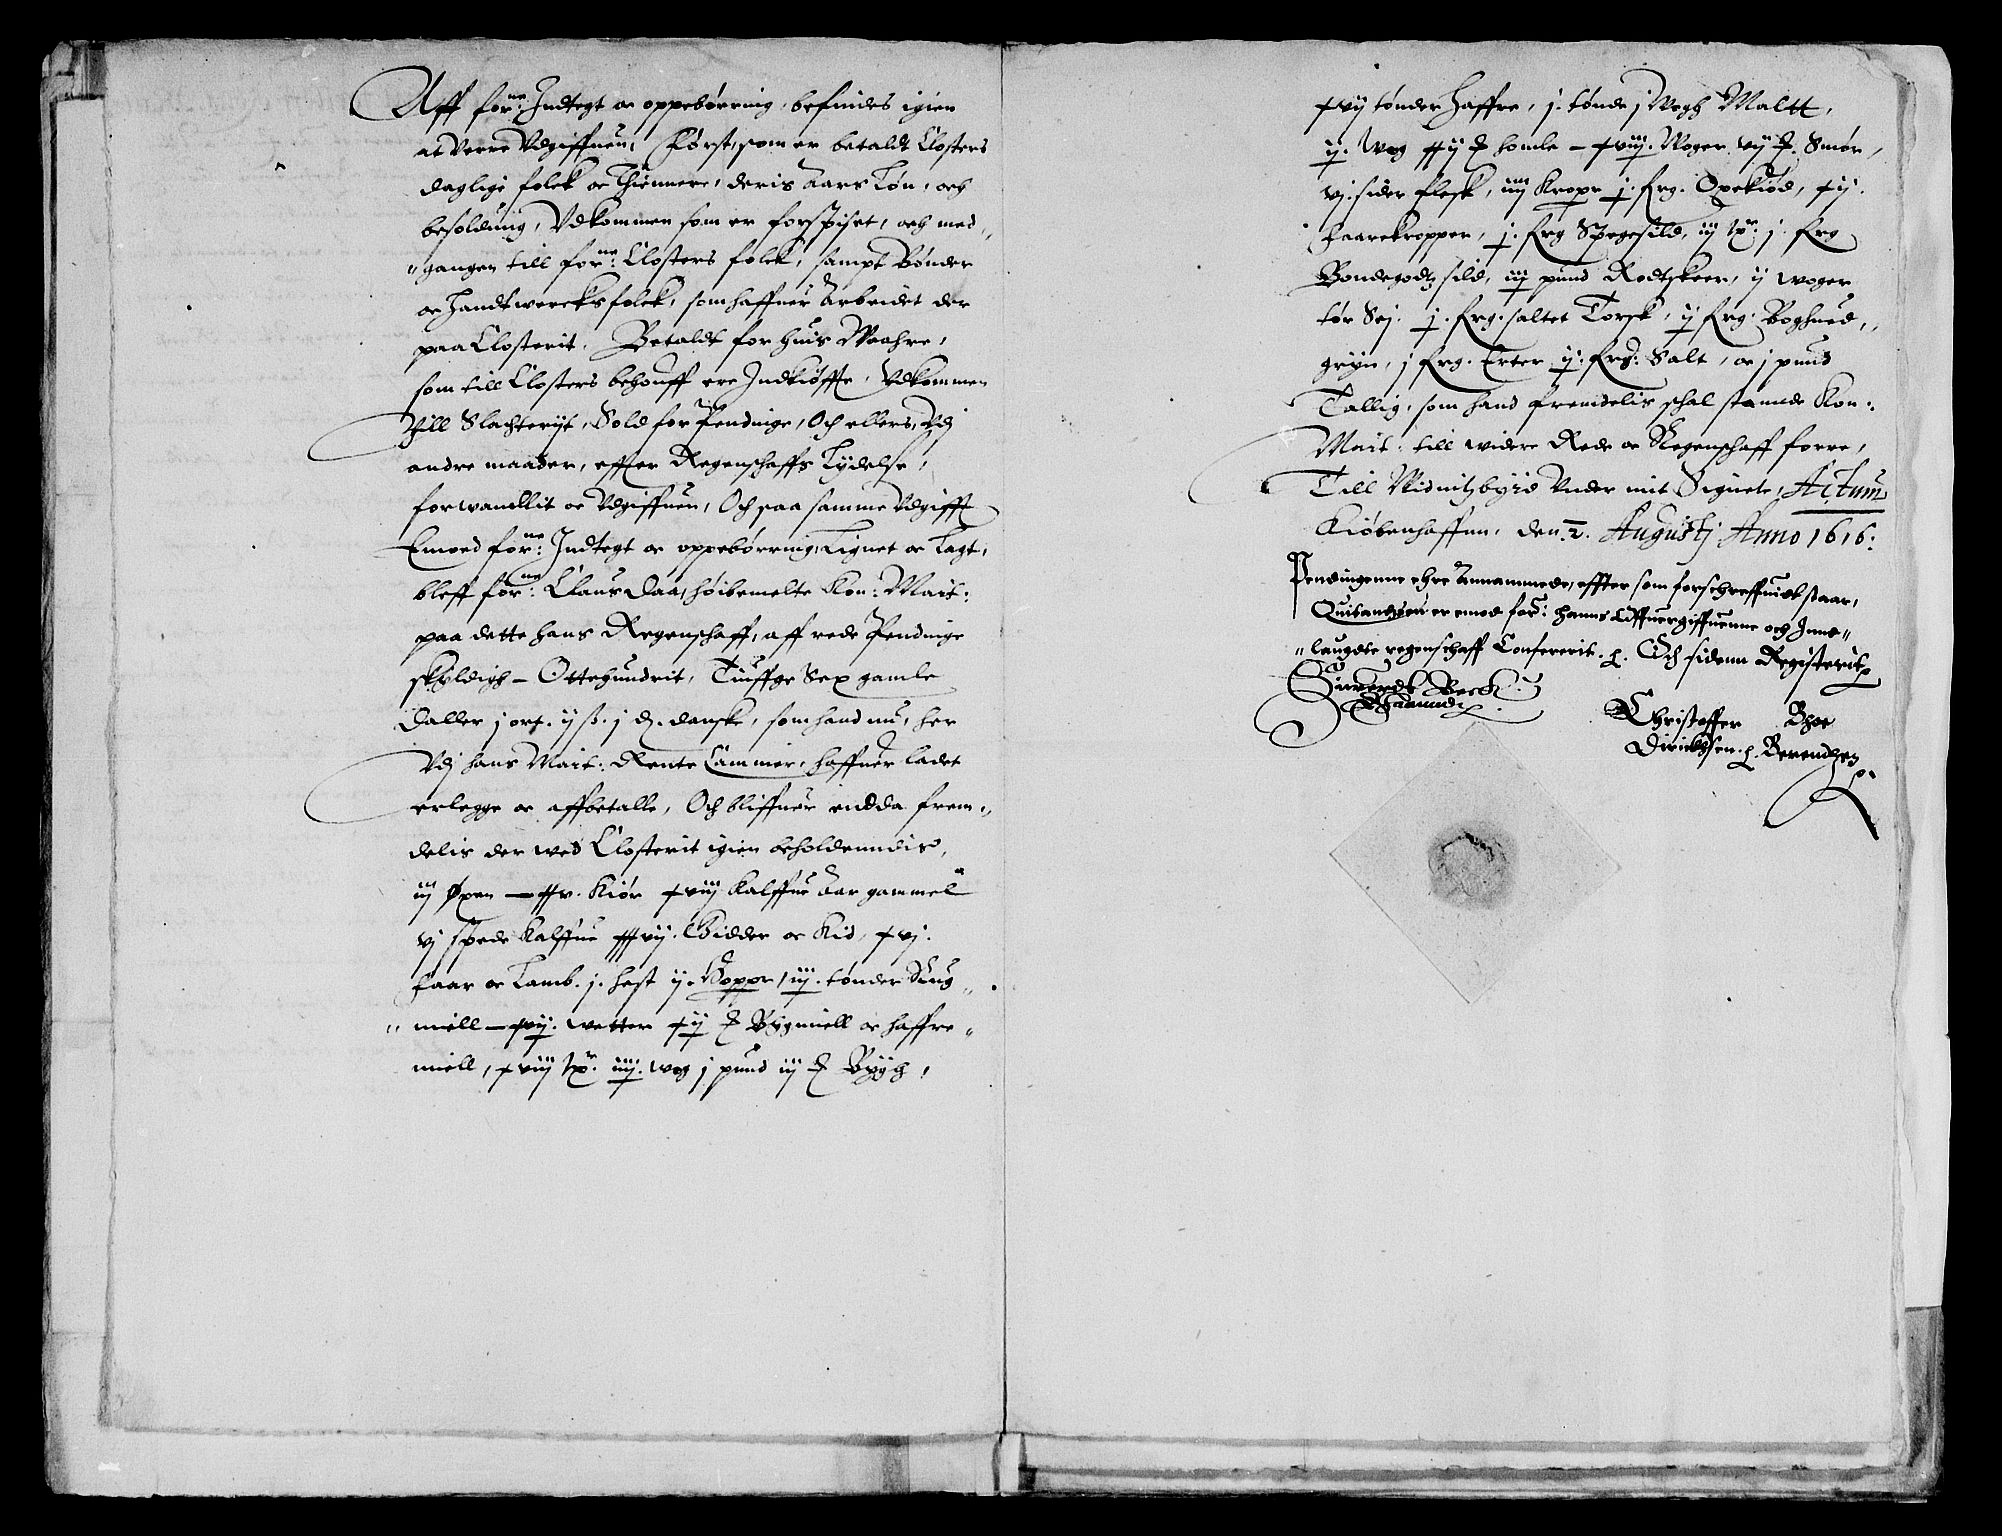 Aff forne: Indtegt oc oppebørring, befindes igien
at Verre Vdgiffuen, Først, som er betaldt Closters
daglige folck oc Thiennere, deris Aars Løn, och
besolding, Vdkommen som er forspiset, och med„
„gangen till forne: Closters folck, sampt Bønder
oc Handtwercksfolck, som haffuer Arbeidet der
paa Closterit. Betaldt for huis Waahre,
som till Closters behouff ere Indkiøffte, Vdkommen
till Slachterijt, Sold for Pendinge, Och ellers, Vdj
andre maader, effter Regenschaffs Lydelse,
forwandlit oc Vdgiffuen, Och paa samme Vdgifft
Emoed forne: Indtegt oc oppebørring, Lignet oc Lagt,
bleff forne: Claus Daa, høibemelte Kon: Mait:
paa dette hans Regenschaff, aff rede Pendinge
skyldigh – Ottehundrit, Tiuffge Sex gamle
Daller j ort. ij ß. j d. danske, som hand nu, her
Vdj hans Mait: Rente Cammer, haffuer ladet
erlegge oc affbetalle, Och bliffuer endda frem„
delis der wed Closterit igien beholdenndis,
iij Øxen – xxv. Kiør xviij Kalffue Aar gammel
vj spede Kalffue xxxvij. Gidder oc Kid, xvj.
faar oc Lamb. j. hest ij. Hoppr, iij. tønder Rug
„ miell – xvij. wetter xij ℔ Bygmiell oc haffre„
miell, xviij pr. iiij. wog j pund iij ℔ Bygh,
xvij tønder Haffre, j. tønde j Wogh Maltt,
ij. Wog xxij ℔ homle – xviij. Woger vij ℔. Smør,
vj. sider flesk, iiij Kropr j. frg. Oxekiød, xij.
faarekropper, j. frg Spegesild, iij pr. j. frg
Bondegodtz sild, iij pund Rodtskeer, ij woger
tør Sej. j. frg. saltet Torsk, ij frg. Boghued„
gryn, j frg. Erter ij. frg: Salt, oc j pund
Tallig, som hand fremdelis schal stannde Kon:
Mait: till widere Rede oc Regenschaff forre,
Till Widnitzbyrd Vnder mit Signete, Actum
Kiøbenhaffn, den 2. Augustj Anno 1616:
Pendingenne ehre Annammede, effter som forschreffuidt staar,
Quitandsen er emod for: hanns Offuergiffuenne och Inne„
„laugdte regenschaff Confererit. Och sidenn Registerit
Siuerdt Beck
Christoffer
Dirichsen. Berendtzen